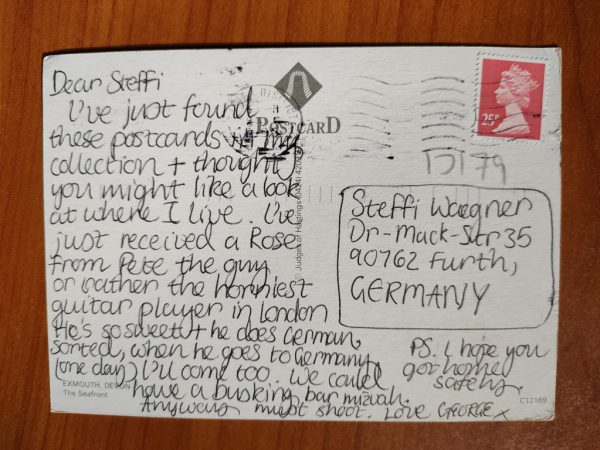 Dear Steffi
I've just found
these postcards in my
collection + thought
you might like a look
at where I live. I've
just received a Rose
from Pete the guy
or rather the horniest
guitar player in London
He's so sweet + he does German,
sorted, when he goes to Germany
(one day) I'll come too. We could
have a busking bar mizvah.
Anyways must shoot. Love GEORGE x
P.S. I hope you
got home
safely.
POSTCARD
25P
DI 79
Steffi Waegner
Dr-Mack-Str 35
90762 Furth,
GERMANY
© Judges of Hastings (0424) 420
EXMOUTH, DEVON
The Seafront
C12169